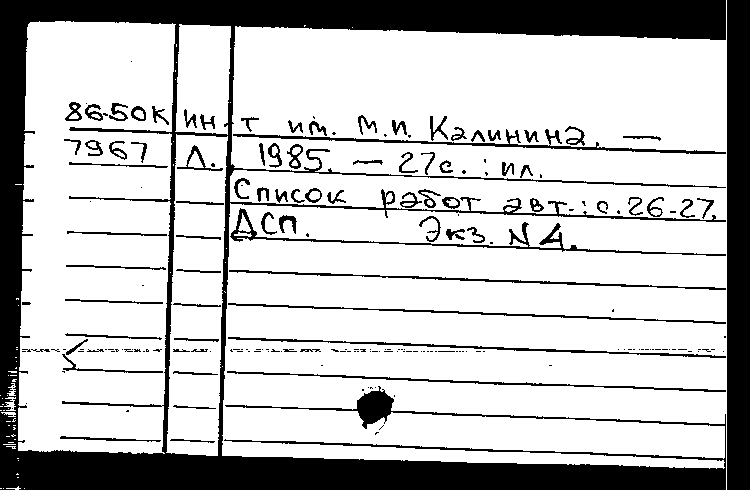 86-50К ин-т им. М.И. Калинина. —
7967 Л., 1985. — 27с. : ил.
Список работ авт.: с. 26-27.
ДСП. Экз. N 4.